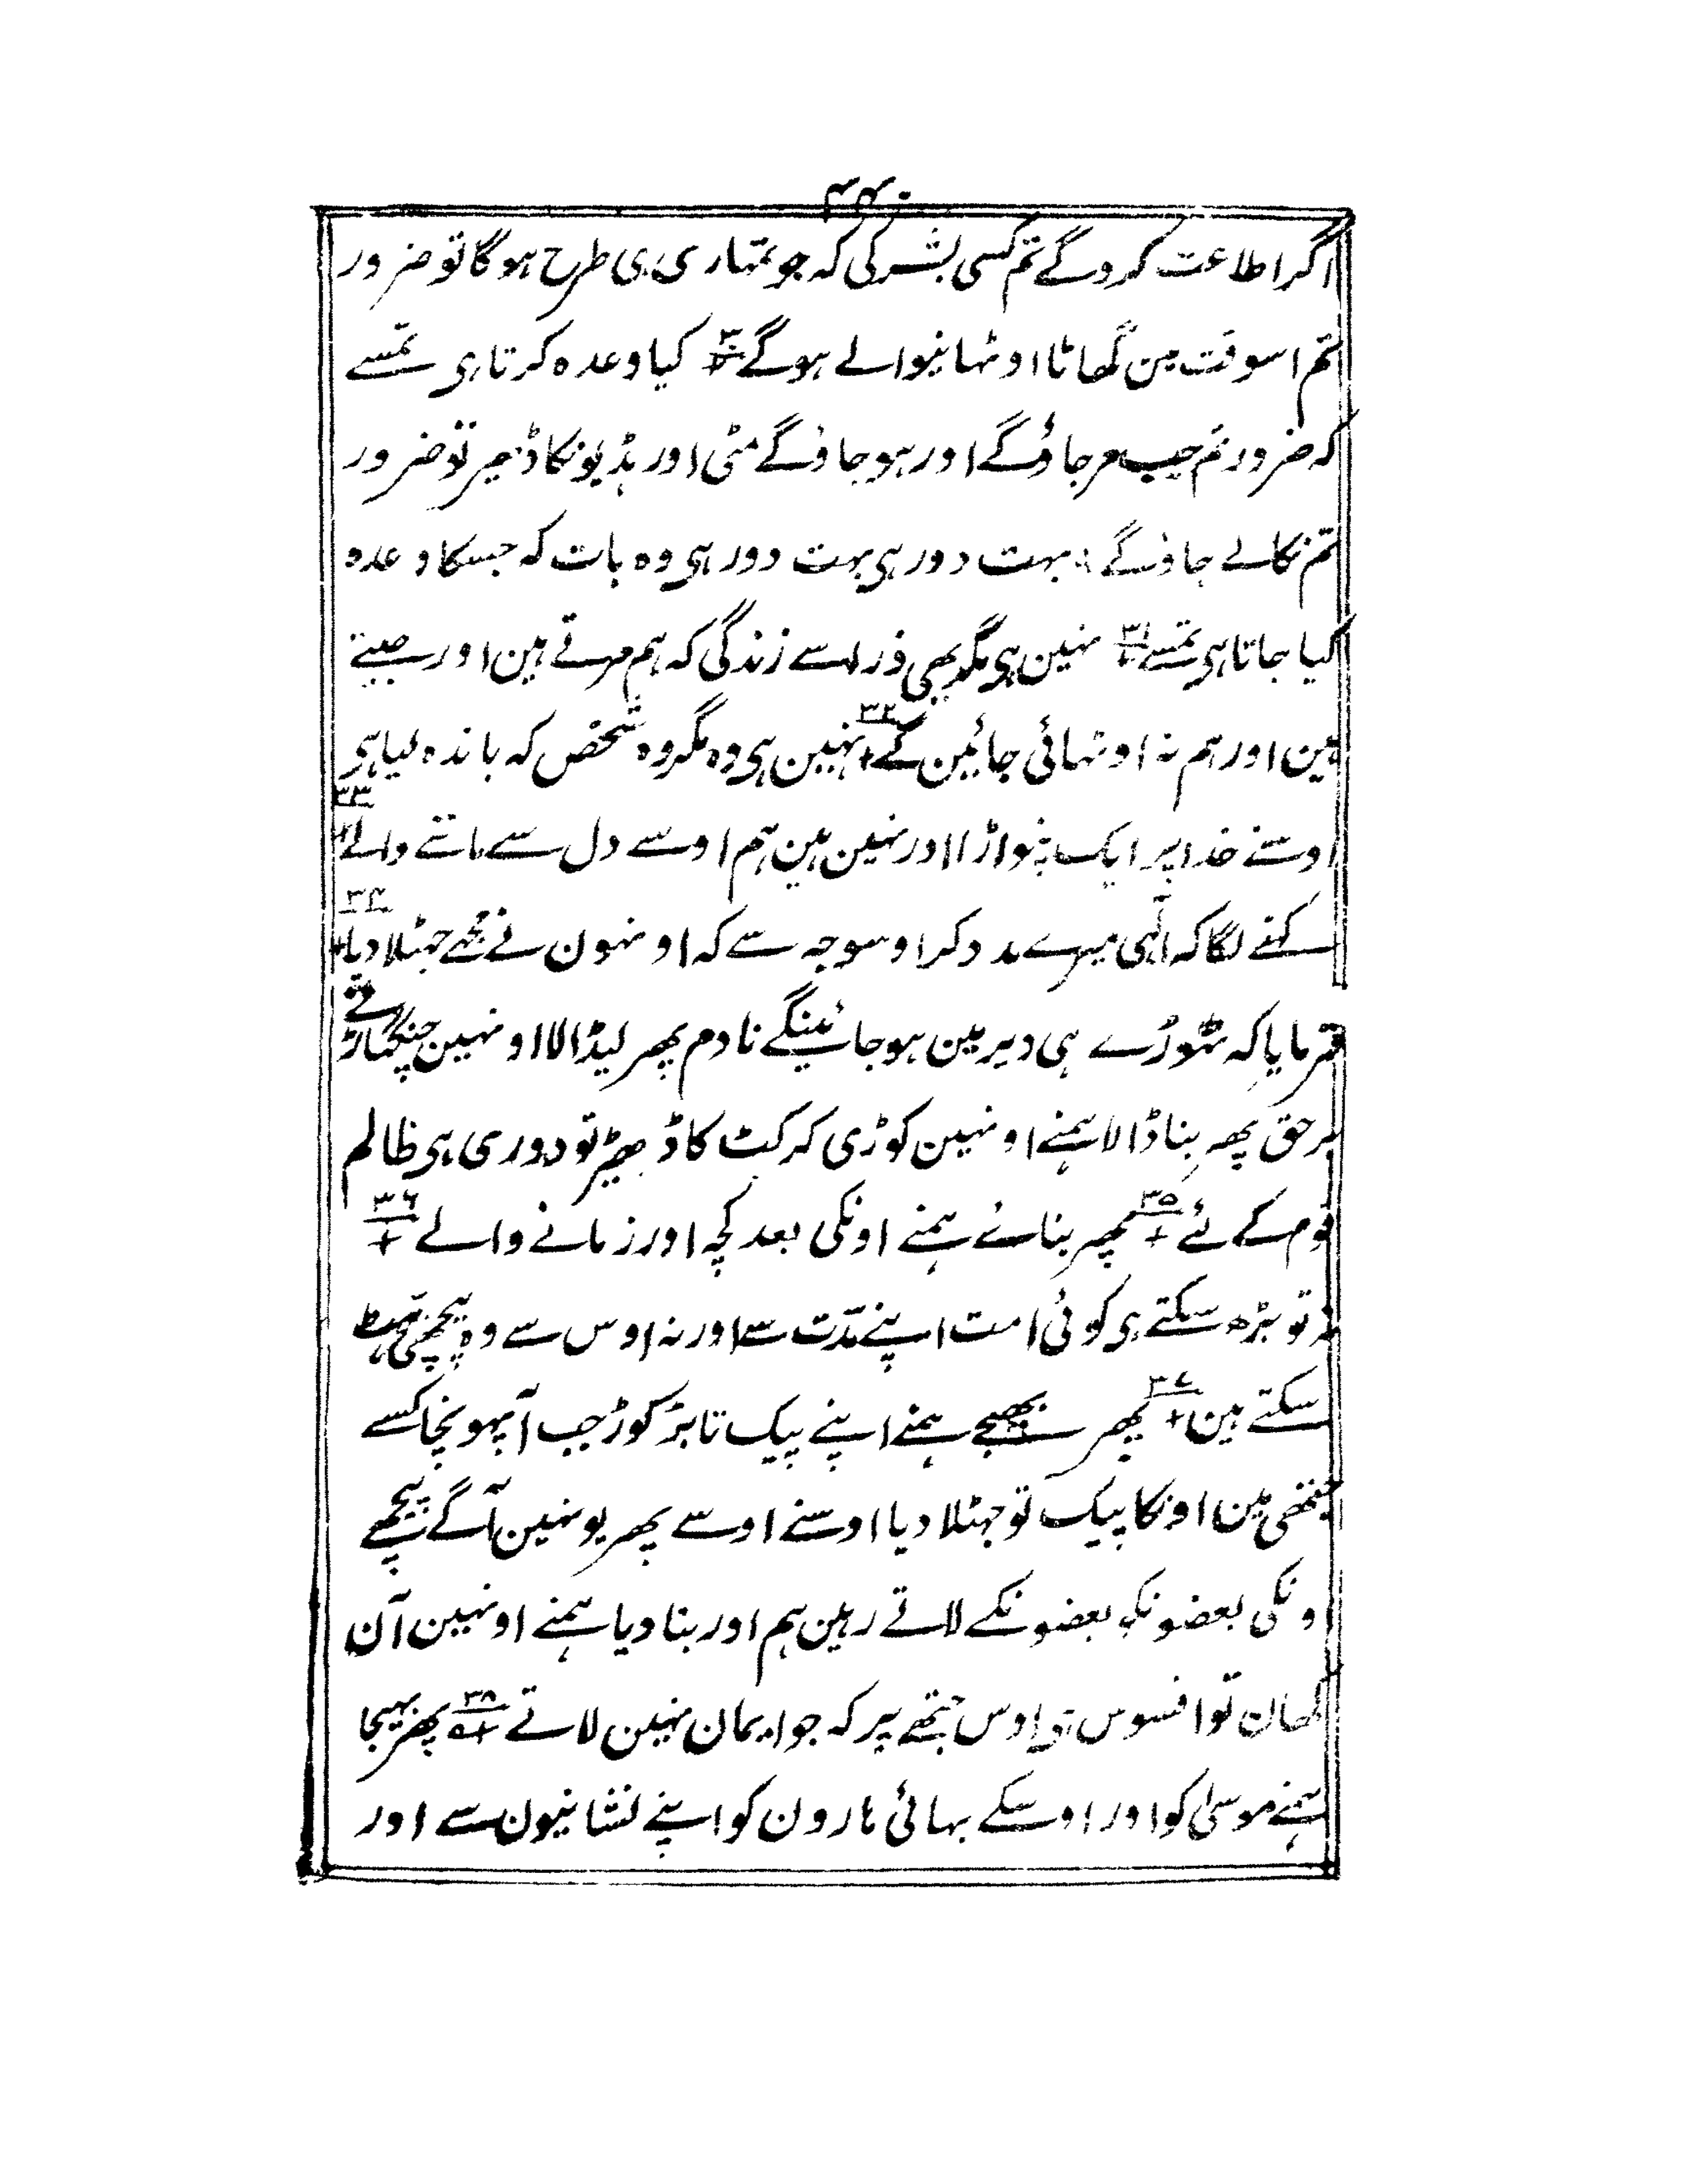 ۴۴۰
اگر اطاعت کروگے تم کسی بشر کی کہ جو تمہاری ہی طرح ہوگا تو ضرور
تم اسوقت مین گھاٹا اوٹہانیوالے ہوگے ۳۰ کیا وعدہ کرتا ہی تمسے
کہ ضرور تم جب مرجاؤگے اور ہوجاؤگے مٹی اور ہڈیونکا ڈہیر تو ضرور
تم نکالے جاؤگے بہت دور ہی بہت دور ہی وہ بات کہ جسکا وعدہ
کیا جاتا ہی تمسے ۳۱ نہین ہی مگر یہی ذراسے زندگی کہ ہم مرتے ہین اور جیتے
ہین اور ہم نہ اوٹہائی جائینگے ۳۲ نہین ہی وہ مگر وہ شخص کہ باندہ لیا ہی
اوسنے خدا پر ایک اور نہین ہین ہم اوسے دل سے ماننے والے ۳۳
کہنے لگا کہ الٰہی میرے مدد کر اوسوجہ سے کہ اونہون نے مجھے جہٹلا دیا ۳۴
فرمایا کہ تھوڑے ہی دیر مین ہوجائینگے نادم پھر لیڈالا اونہین چنگہاڑ نے
برحق پھر بنا ڈالا ہمنے اونہین کوڑی کرکٹ کا ڈھیڑ تو دوری ہی ظالم
قوم کے لئے ۳۵ پھر بنائے ہمنے اونکی بعد کچہ اور زمانے والے ۳۶
نہ تو بڑھ سکتے ہی کوئی امت اپنے مدّت سے اور نہ اوس سے وہ پیچھی ہٹ
سکتے ہین ۳۷ پھر بھیجے ہمنے اپنے پیک تابڑ توڑ جب آپہونچا کسے
جتھی مین اونکا پیک تو جہٹلا دیا اوسنے اوسے پھر یونہین آگے پیچھے
اونکی بعضونکو بعضونکے لاتے رہین ہم اور بنا دیا ہمنے اونہین آن
کہان تو افسوس ہی اوس جتھے پر کہ جو ایمان نہین لاتے ۳۸ پھر بہیجا
ہمنے موسیٰ کو اور اوسکے بہائی ہارون کو اپنے نشانیون سے اور